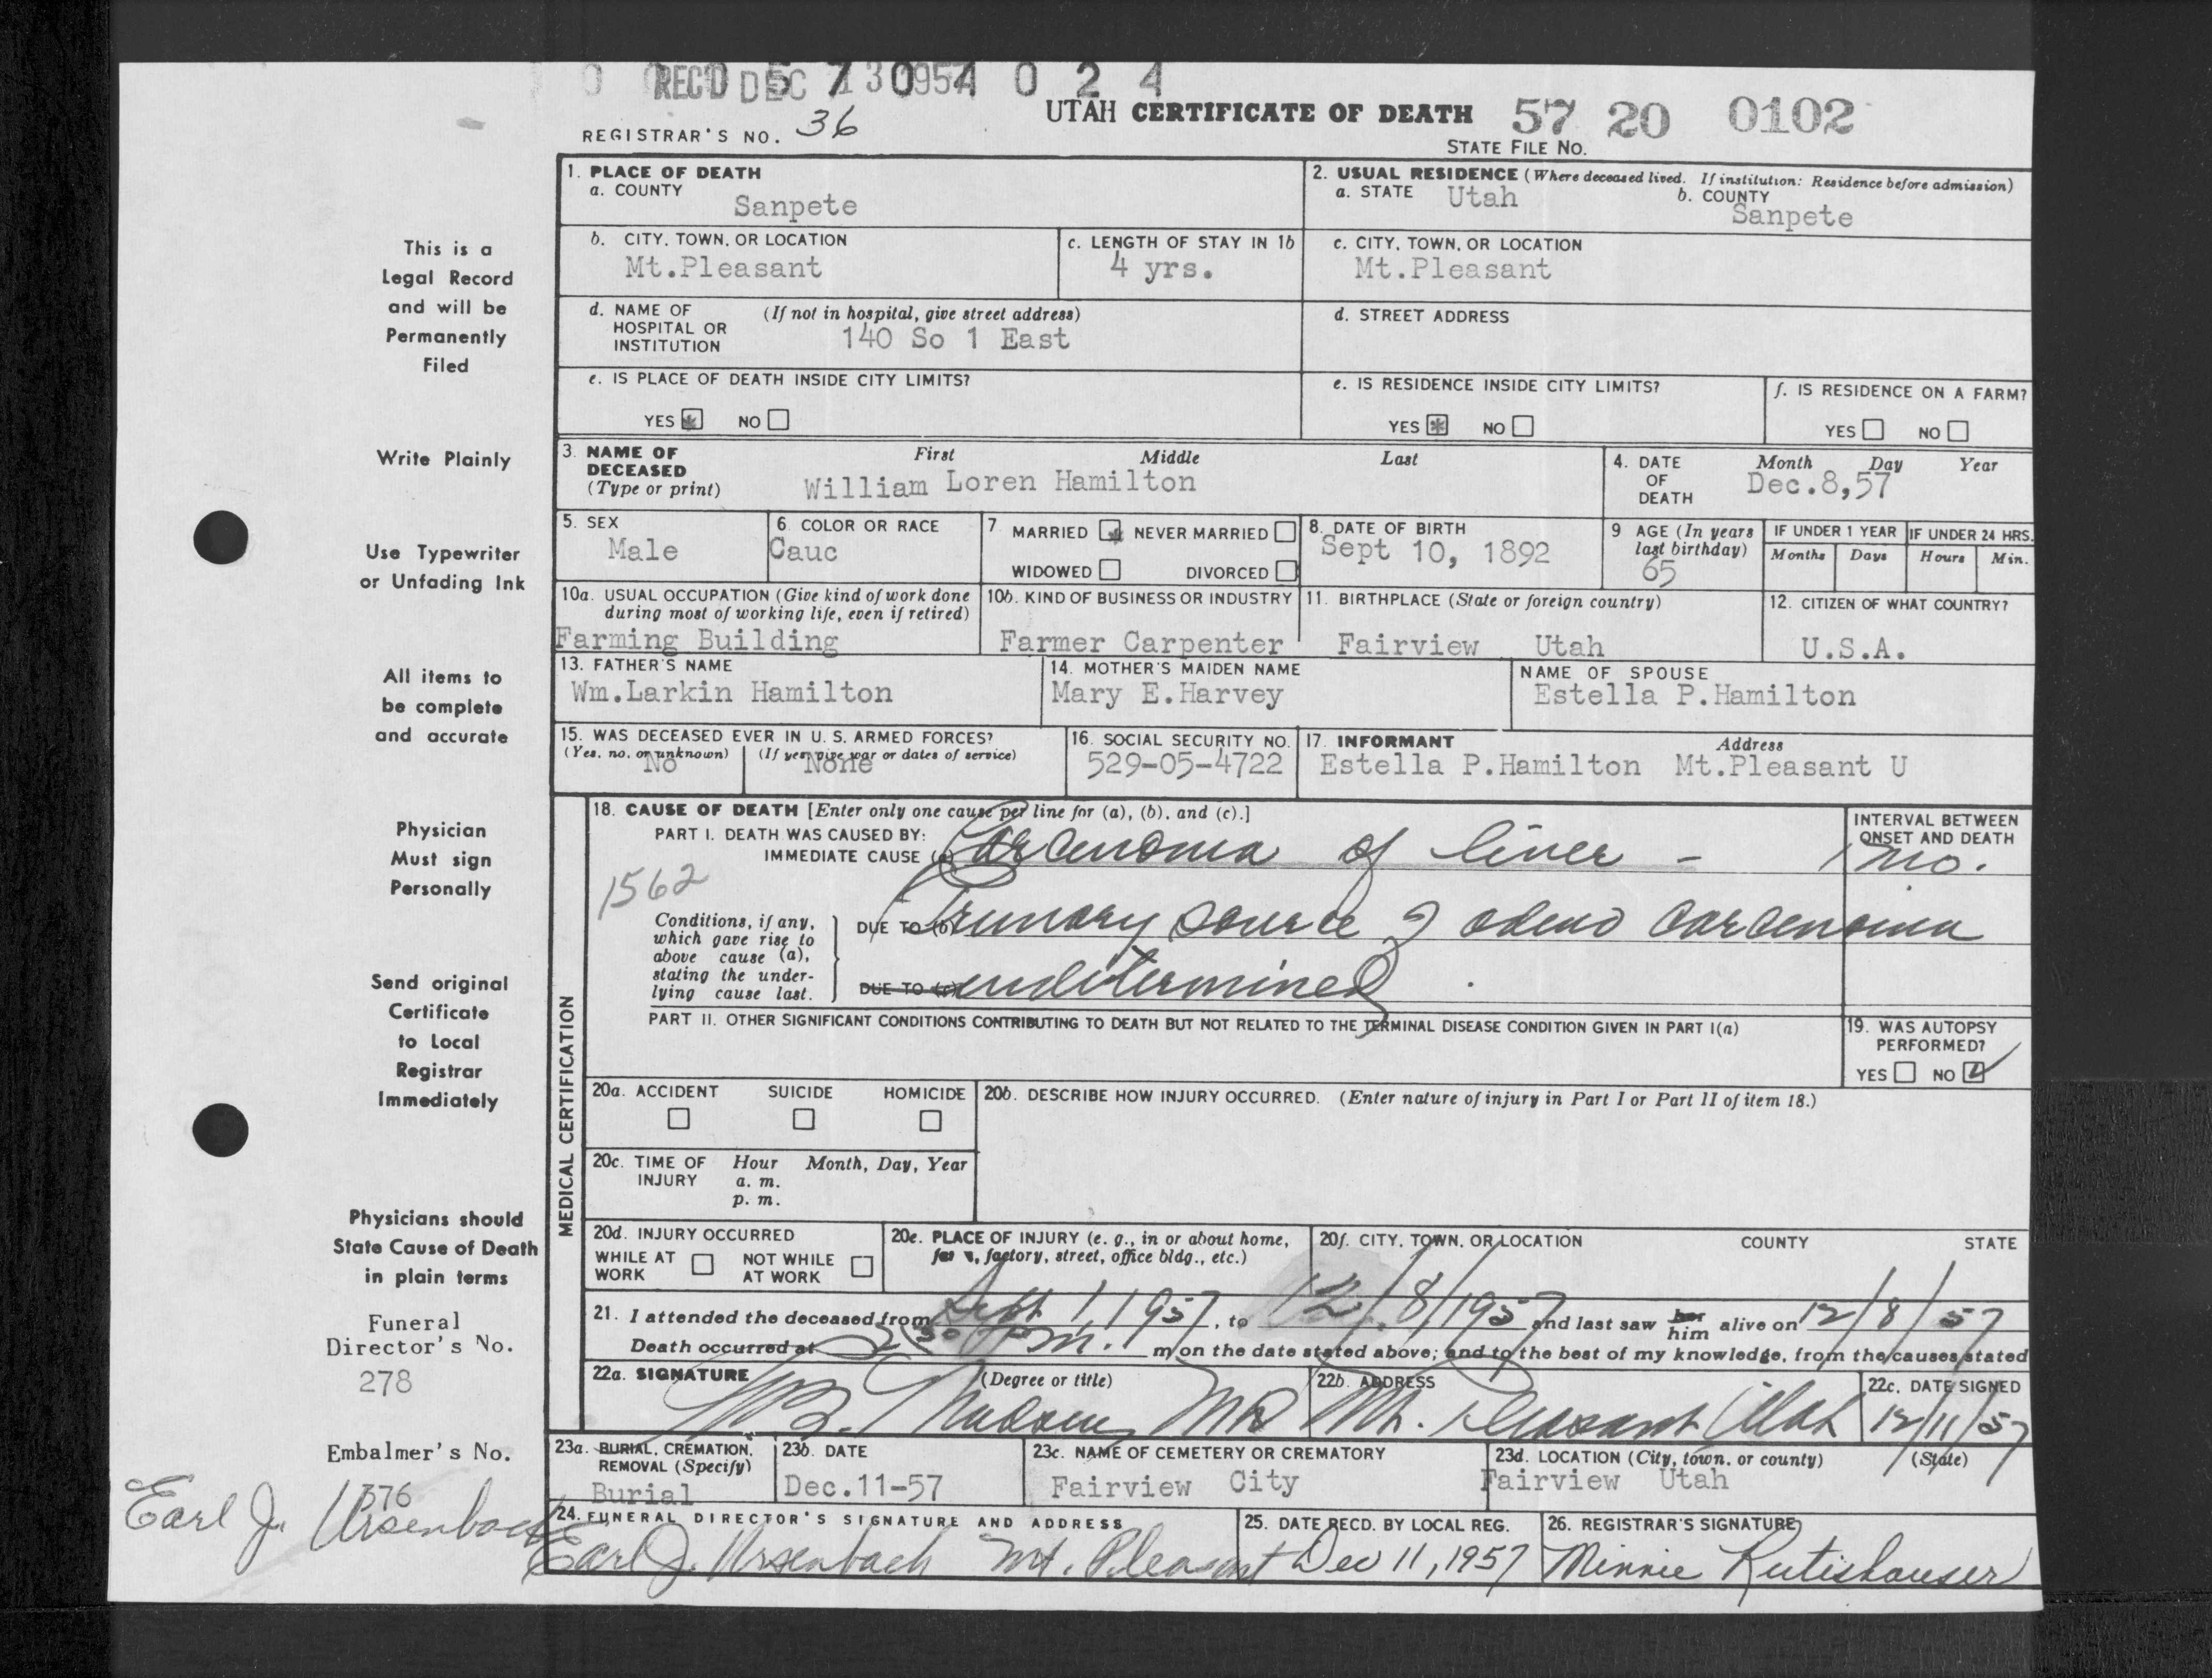 REC'D DEC 13 1957
0 57 0 4 0 2 4
REGISTRAR'S NO. 36
UTAH CERTIFICATE OF DEATH 57 20 0102
STATE FILE NO.
This is a
Legal Record
and will be
Permanently
Filed
Write Plainly
Use Typewriter
or Unfading Ink
All items to
be complete
and accurate
Physician
Must sign
Personally
Send original
Certificate
to Local
Registrar
Immediately
Physicians should
State Cause of Death
in plain terms
Funeral
Director's No.
278
Embalmer's No.
376
Earl J. Ursenbach
1. PLACE OF DEATH
a. COUNTY
Sanpete
2. USUAL RESIDENCE (Where deceased lived. If institution: Residence before admission)
a. STATE Utah b. COUNTY
Sanpete
b. CITY, TOWN, OR LOCATION
Mt.Pleasant
c. LENGTH OF STAY IN 1b
4 yrs.
c. CITY, TOWN, OR LOCATION
Mt.Pleasant
d. NAME OF (If not in hospital, give street address)
HOSPITAL OR
INSTITUTION 140 So 1 East
d. STREET ADDRESS
e. IS PLACE OF DEATH INSIDE CITY LIMITS?
YES NO
e. IS RESIDENCE INSIDE CITY LIMITS?
YES NO
f. IS RESIDENCE ON A FARM?
YES NO
3. NAME OF First Middle Last
DECEASED
(Type or print) William Loren Hamilton
4. DATE Month Day Year
OF Dec.8,57
DEATH
5. SEX
Male
6 COLOR OR RACE
Cauc
7. MARRIED NEVER MARRIED
WIDOWED DIVORCED
8. DATE OF BIRTH
Sept 10, 1892
9 AGE (In years
last birthday)
65
IF UNDER 1 YEAR
Months Days
IF UNDER 24 HRS.
Hours Min.
10a. USUAL OCCUPATION (Give kind of work done
during most of working life, even if retired)
Farming Building
10b. KIND OF BUSINESS OR INDUSTRY
Farmer Carpenter
11. BIRTHPLACE (State or foreign country)
Fairview Utah
12. CITIZEN OF WHAT COUNTRY?
U.S.A.
13. FATHER'S NAME
Wm.Larkin Hamilton
14. MOTHER'S MAIDEN NAME
Mary E.Harvey
NAME OF SPOUSE
Estella P.Hamilton
15. WAS DECEASED EVER IN U. S. ARMED FORCES?
(Yes, no, or unknown) (If yes, give war or dates of service)
No None
16. SOCIAL SECURITY NO.
529-05-4722
17. INFORMANT Address
Estella P.Hamilton Mt.Pleasant U
MEDICAL CERTIFICATION
18. CAUSE OF DEATH [Enter only one cause per line for (a), (b), and (c).]
PART I. DEATH WAS CAUSED BY:
IMMEDIATE CAUSE (a) Carcenoma of liver -
INTERVAL BETWEEN
ONSET AND DEATH
1 mo.
1562
Conditions, if any,
which gave rise to
above cause (a),
stating the under-
lying cause last.
DUE TO (b) Primary source of adeno carcenoma
DUE TO (c) undetermined
PART II. OTHER SIGNIFICANT CONDITIONS CONTRIBUTING TO DEATH BUT NOT RELATED TO THE TERMINAL DISEASE CONDITION GIVEN IN PART I(a)
19. WAS AUTOPSY
PERFORMED?
YES NO
20a. ACCIDENT SUICIDE HOMICIDE
20b. DESCRIBE HOW INJURY OCCURRED. (Enter nature of injury in Part I or Part II of item 18.)
20c. TIME OF Hour Month, Day, Year
INJURY a. m.
p. m.
20d. INJURY OCCURRED
WHILE AT NOT WHILE
WORK AT WORK
20e. PLACE OF INJURY (e. g., in or about home,
farm, factory, street, office bldg., etc.)
20f. CITY, TOWN, OR LOCATION COUNTY STATE
21. I attended the deceased from Sept 1, 1957, to 12/8/1957 and last saw her him alive on 12/8/57
Death occurred at 2:30 P.m. m on the date stated above; and to the best of my knowledge, from the causes stated
22a. SIGNATURE (Degree or title)
Madsen MD
22b. ADDRESS
Mt. Pleasant Utah
22c. DATE SIGNED
12/11/57
23a. BURIAL, CREMATION,
REMOVAL (Specify)
Burial
23b. DATE
Dec.11-57
23c. NAME OF CEMETERY OR CREMATORY
Fairview City
23d. LOCATION (City, town, or county) (State)
Fairview Utah
24. FUNERAL DIRECTOR'S SIGNATURE AND ADDRESS
Earl J. Ursenbach Mt. Pleasant
25. DATE RECD. BY LOCAL REG.
Dec 11, 1957
26. REGISTRAR'S SIGNATURE
Minnie Rutishauser